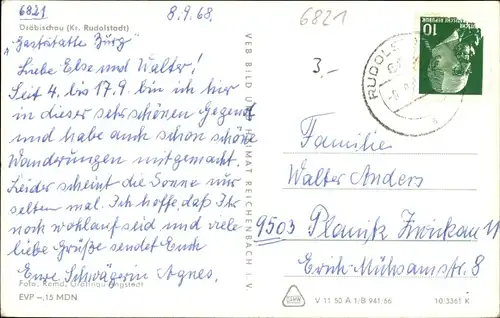 6821
8.9.68.
6821
Dröbischau (Kr. Rudolstadt)
"Gaststätte Burg"
Liebe Else und Walter!
Seit 4. bis 17.9. bin ich hier
in dieser sehr schönen Gegend
und habe auch schon schöne
Wanderungen mitgemacht.
Leider scheint die Sonne nur
selten mal. Ich hoffe, daß Ihr
noch wohlauf seid und viele
liebe Grüße sendet Euch
Eure Schwägerin Agnes.
Foto: Remd, Gräfinau-Angstedt
EVP –,15 MDN
VEB BILD UND HEIMAT REICHENBACH I. V.
3.-
RUDOLS
10
DEUTSCHE DEMOKRATISCHE REPUBLIK
Familie
Walter Anders
9503 Planitz Zwickau
Erich-Mühsamstr. 8
V 11 50 A 1/B 941/66
10/3361 K